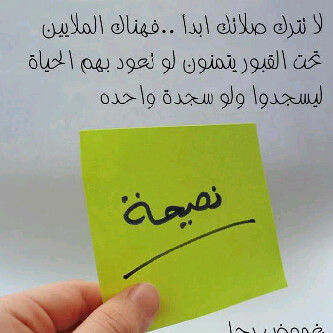 لا تترك صلاتك ابدا ..فهناك الملايين
تحت القبور يتمنون لو تعود بهم الحياة
ليسجدوا ولو سجدة واحده
نصيحة